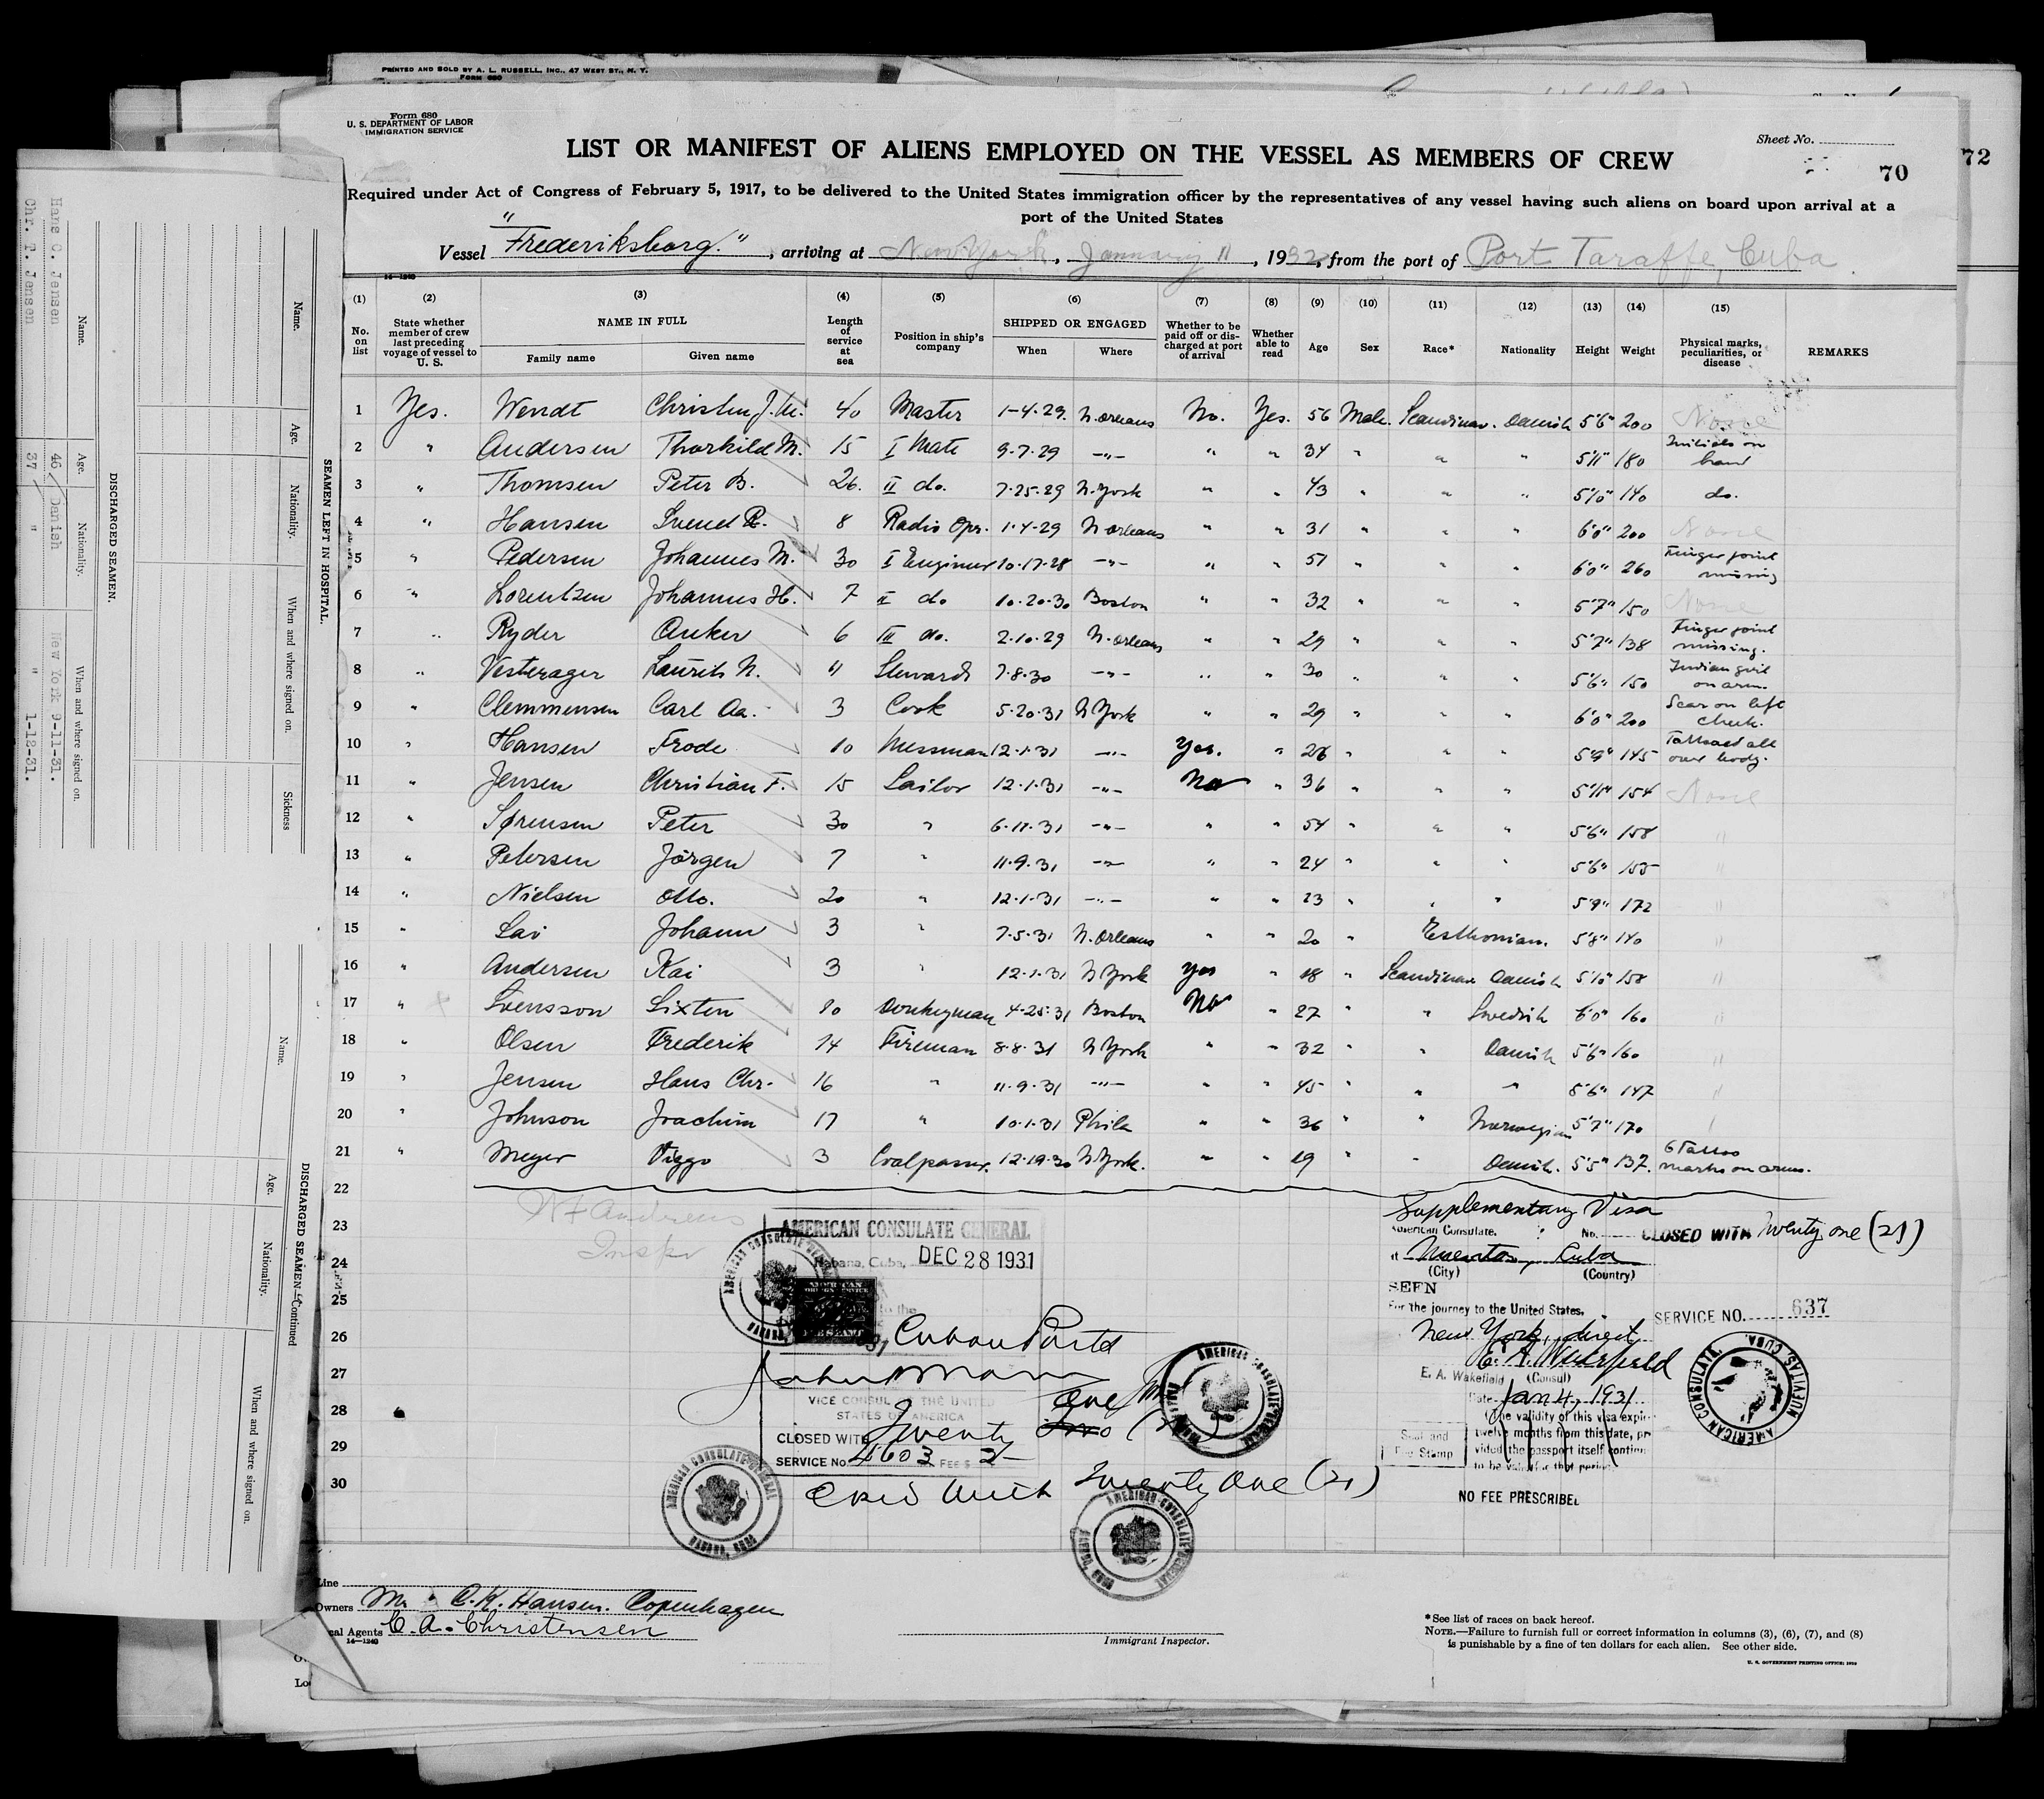 PRINTED AND SOLD BY A. L. RUSSELL, INC., 47 WEST ST., N. Y.
FORM 680
Form 680
U. S. DEPARTMENT OF LABOR
IMMIGRATION SERVICE
Sheet No.
70
72
LIST OR MANIFEST OF ALIENS EMPLOYED ON THE VESSEL AS MEMBERS OF CREW
Required under Act of Congress of February 5, 1917, to be delivered to the United States immigration officer by the representatives of any vessel having such aliens on board upon arrival at a
port of the United States
Vessel "Frederiksborg.", arriving at New York, January 11, 1932, from the port of Port Taraffe, Cuba
14—1240
(1) (2) (3) (4) (5) (6) (7) (8) (9) (10) (11) (12) (13) (14) (15)
No. on list | State whether member of crew last preceding voyage of vessel to U. S. | NAME IN FULL Family name Given name | Length of service at sea | Position in ship's company | SHIPPED OR ENGAGED When Where | Whether to be paid off or discharged at port of arrival | Whether able to read | Age | Sex | Race* | Nationality | Height | Weight | Physical marks, peculiarities, or disease | REMARKS
1 Yes. Wendt Christen J. 40 Master 1-4-29. N. Orleans No. Yes. 56 Male. Scandinav. Danish 5'6" 200 None
2 " Andersen Thorkild M. 15 I Mate 9-7-29 -"- " " 34 " " " 5'11" 180 Initials on hand
3 " Thomsen Peter B. 26. II do. 7-25-29 N. York " " 43 " " " 5'10" 140 do.
4 " Hansen Svend R. 8 Radio Opr. 1-4-29 N Orleans " " 31 " " " 6'0" 200 None
5 " Pedersen Johannes M. 30 I Engineer 10-17-28 -"- " " 51 " " " 6'0" 260 Finger joint missing
6 " Lorentzen Johannes H. 7 II do 10-20-30 Boston " " 32 " " " 5'7" 150 None
7 " Ryder Anker 6 III do. 2-10-29 N. Orleans " " 29 " " " 5'7" 138 Finger joint missing.
8 " Vesterager Laurits N. 11 Steward 7-8-30 -"- " " 30 " " " 5'6" 150 Indian girl on arm.
9 " Clemmensen Carl Aa. 3 Cook 5-20-31 N York " " 29 " " " 6'0" 200 Scar on left cheek.
10 " Hansen Frode 10 Messman 12-1-31 -"- Yes. " 26 " " " 5'9" 145 Tattoed all over body.
11 " Jensen Christian F. 15 Sailor 12-1-31 -"- No " 36 " " " 5'11" 154 None
12 " Sørensen Peter 30 " 6-17-31 -"- " " 54 " " " 5'6" 158 "
13 " Petersen Jörgen 7 " 11-9-31 -"- " " 24 " " " 5'6" 155 "
14 " Nielsen Otto. 20 " 12-1-31 -"- " " " " " 5'9" 172 "
15 " Johann 3 " 7-5-31 N. Orleans " " 20 " Esthonian. 5'8" 140 "
16 " Andersen Kai 3 " 12-1-31 N York Yes " 18 " Scandinav Danish 5'10" 158 "
17 " Svensson Sixten 10 Donkeyman 4-25-31 Boston No " 27 " " Swedish 6'0" 160 "
18 " Olsen Frederik 14 Fireman 8-8-31 N York " " 32 " " Danish 5'6" 160 "
19 " Jensen Hans Chr. 16 " 11-9-31 -"- " " 45 " " " 5'6" 147 "
20 " Johnson Joachim 17 " 10-1-31 Phila " " 36 " " Norwegian 5'7" 170 "
21 " Meyer Viggo 3 Coalpasser. 12-19-30 N York. " " 19 " " Danish. 5'5" 137. 6 Tattoo marks on arms.
22
23
24
25
26
27
28
29
30
W F Andrews
Inspr
AMERICAN CONSULATE GENERAL
Habana, Cuba, DEC 28 1931
to the
Cuban Ports
VICE CONSUL OF THE UNITED
STATES OF AMERICA
CLOSED WITH Twenty One
SERVICE No. 4603 FEE $ 2-
Closed With Twenty One (21)
Supplementary Visa
American Consulate, No. CLOSED WITH Twenty one (21)
at Nuevitas, Cuba
(City) (Country)
SEEN
For the journey to the United States.
SERVICE NO. 637
New York, direct
E. A. Wakefield
E. A. Wakefield (Consul)
Date Jan 4, 1931
The validity of this visa expir
twelve months from this date, pr
vided the passport itself contin
to be valid for that period
Seal and
Fee Stamp
NO FEE PRESCRIBED
AMERICAN CONSULATE, NUEVITAS, CUBA.
Line
Owners M. C. K. Hansen. Copenhagen
cal Agents C. A. Christensen
14—1240
Immigrant Inspector.
*See list of races on back hereof.
NOTE.—Failure to furnish full or correct information in columns (3), (6), (7), and (8)
is punishable by a fine of ten dollars for each alien. See other side.
U. S. GOVERNMENT PRINTING OFFICE: 1929
SEAMEN LEFT IN HOSPITAL.
Name. Age. Nationality. When and where signed on. Sickness
DISCHARGED SEAMEN.
Name. Age. Nationality. When and where signed on.
Hans C. Jensen 46 Danish New York 9-11-31.
Chr. T. Jensen 37 " " 1-12-31.
DISCHARGED SEAMEN—Continued
Name. Age. Nationality. When and where signed on.